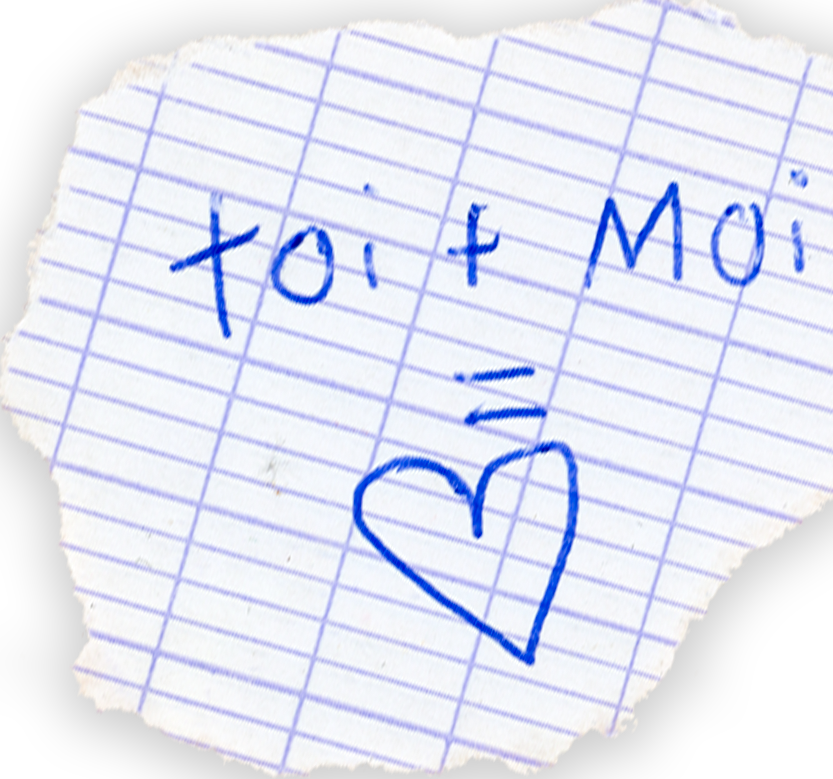 toi + Moi
=
♡